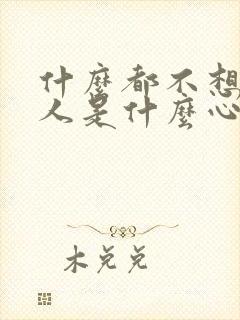 什麼都不想
人是什麼心
木兑兑